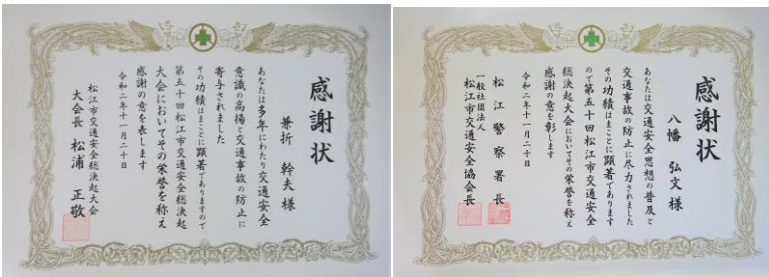 感謝状
兼折 幹夫 様
あなたは多年にわたり交通安全
意識の高揚と交通事故の防止に
寄与されました
その功績はまことに顕著でありますので
第五十回松江市交通安全総決起
大会においてその栄誉を称え
感謝の意を表します
令和二年十一月二十日
松江市交通安全総決起大会
大会長 松浦 正敬
感謝状
八幡 弘文 様
あなたは交通安全思想の普及と
交通事故の防止に尽力されました
その功績はまことに顕著であります
ので第五十回松江市交通安全
総決起大会においてその栄誉を称え
感謝の意を彰します
令和二年十一月二十日
松江警察署長
一般社団法人
松江市交通安全協会長